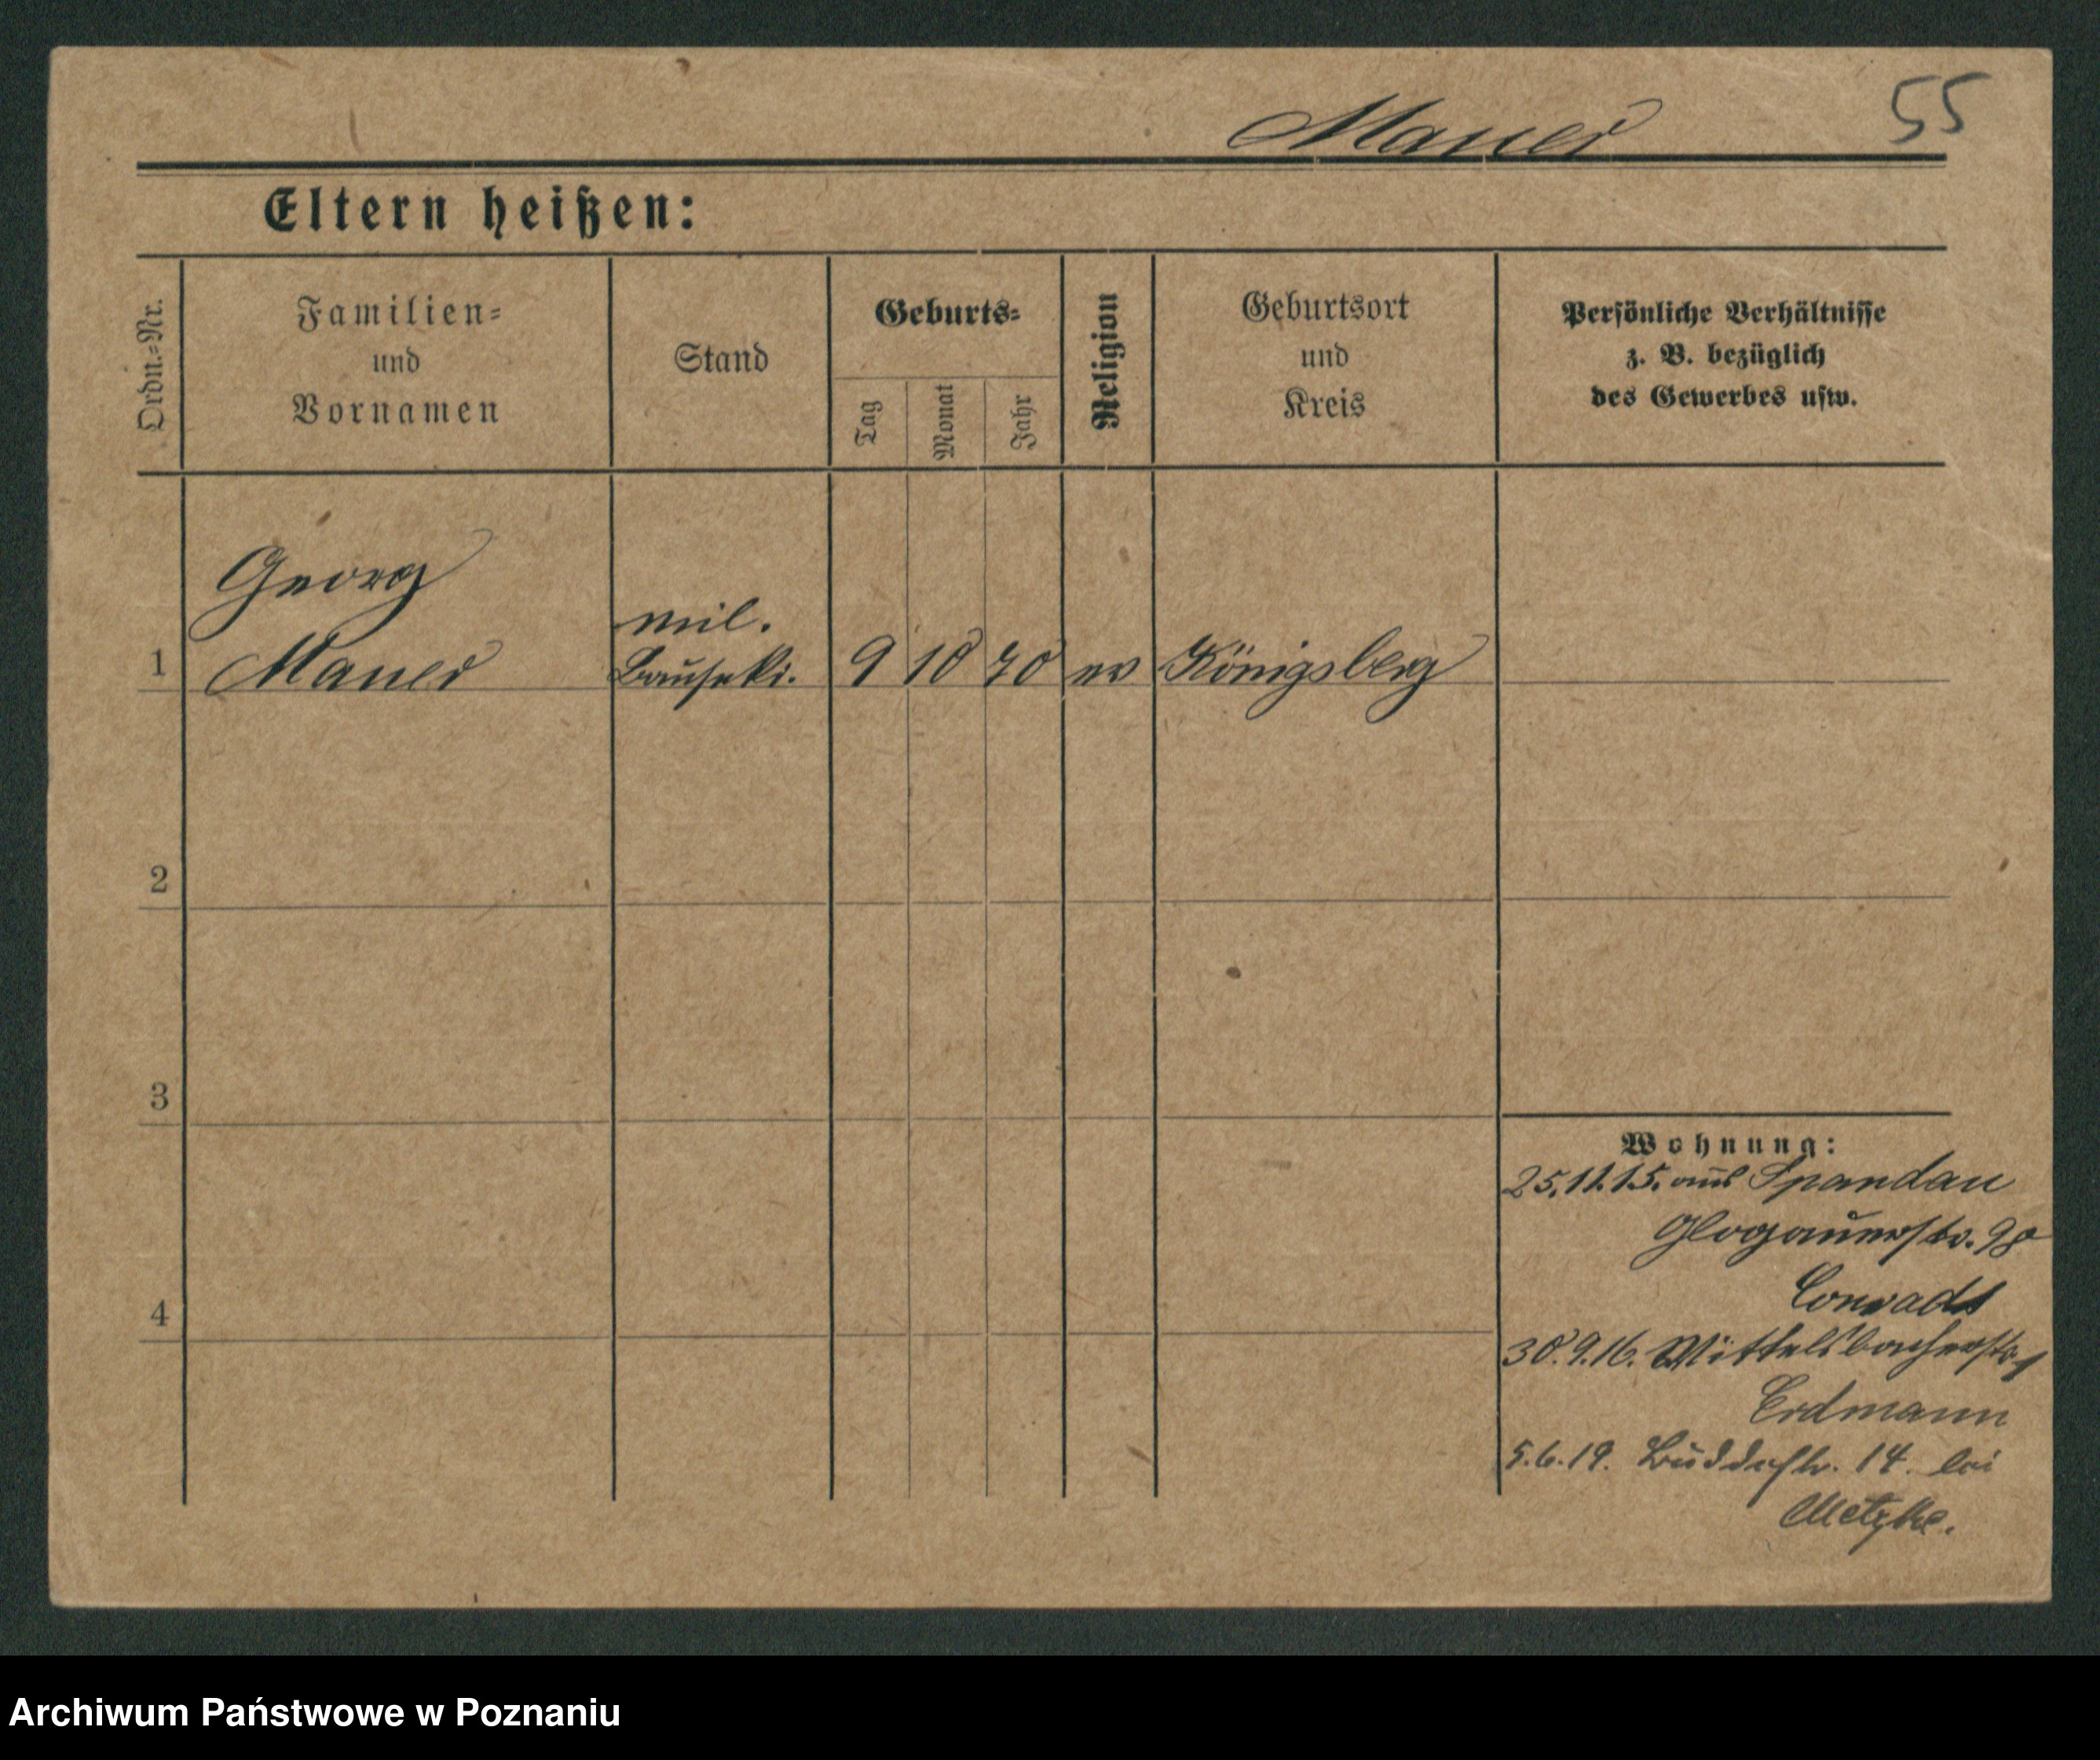 55
Mauer
Eltern heißen:
Ordn.=Nr.
Familien=
und
Vornamen
Stand
Geburts=
Tag
Monat
Jahr
Religion
Geburtsort
und
Kreis
Persönliche Verhältnisse
z. B. bezüglich
des Gewerbes usw.
Georg
mil.
1 Mauer Bausekr. 9 10 70 ev Königsberg
2
3
4
Wohnung:
25.11.15. aus Spandau
Glogauerstr. 98
Conrads
30.9.16. Wittelsbacherstr. 1
Erdmann
5.6.19. Buddestr. 14. bei
Metzke.
Archiwum Państwowe w Poznaniu